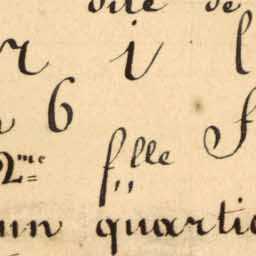 dite de
r i l
6 f
2me flle
un quartie